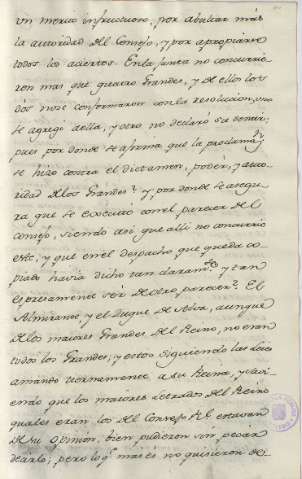 un merito infructuoso, por abultar más
la autoridad del Consejo, y por apropiarse
todos los aciertos. En la junta no concurrie-
ron mas que quatro Grandes, y de ellos los
dos no se conformaron con la resolucion, uno
se agregó a ella, y otro no declaró su sentir;
pues por donde se afirma, que la proclamaᵒⁿ
se hizo contra el dictamen, poder, y auto-
ridad de los Grandes? y por donde se asegu-
ra que se executó con el parecer del
Consejo, siendo asi que alli no concurrió
este, y que en el despacho que queda co-
piado havia dicho tan claramᵗᵉ y tan
expresamente ser de otro parecer? El
Almirante y el Duque de Alva, aunque
de los maiores Grandes del Reino, no eran
todos los Grandes; y estos siguiendo las
amando tiernamente a su Reina, y vi-
endo que los maiores Letrados del Reino
quales eran los del Consejo Rˡ estavan
de su opinion, bien pudieron sin pecar
dejarlo; pero los mas no quisieron